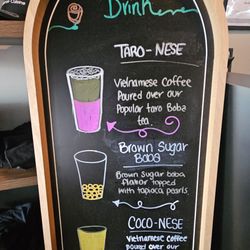 Drink
TARO-NESE
Vietnamese Coffee
Poured over our
Popular taro Boba
tea.
Brown Sugar
Boba
Brown Sugar boba
flavor topped
with tapioca pearls.
COCO-NESE
Vietnamese Coffee
Poured over our